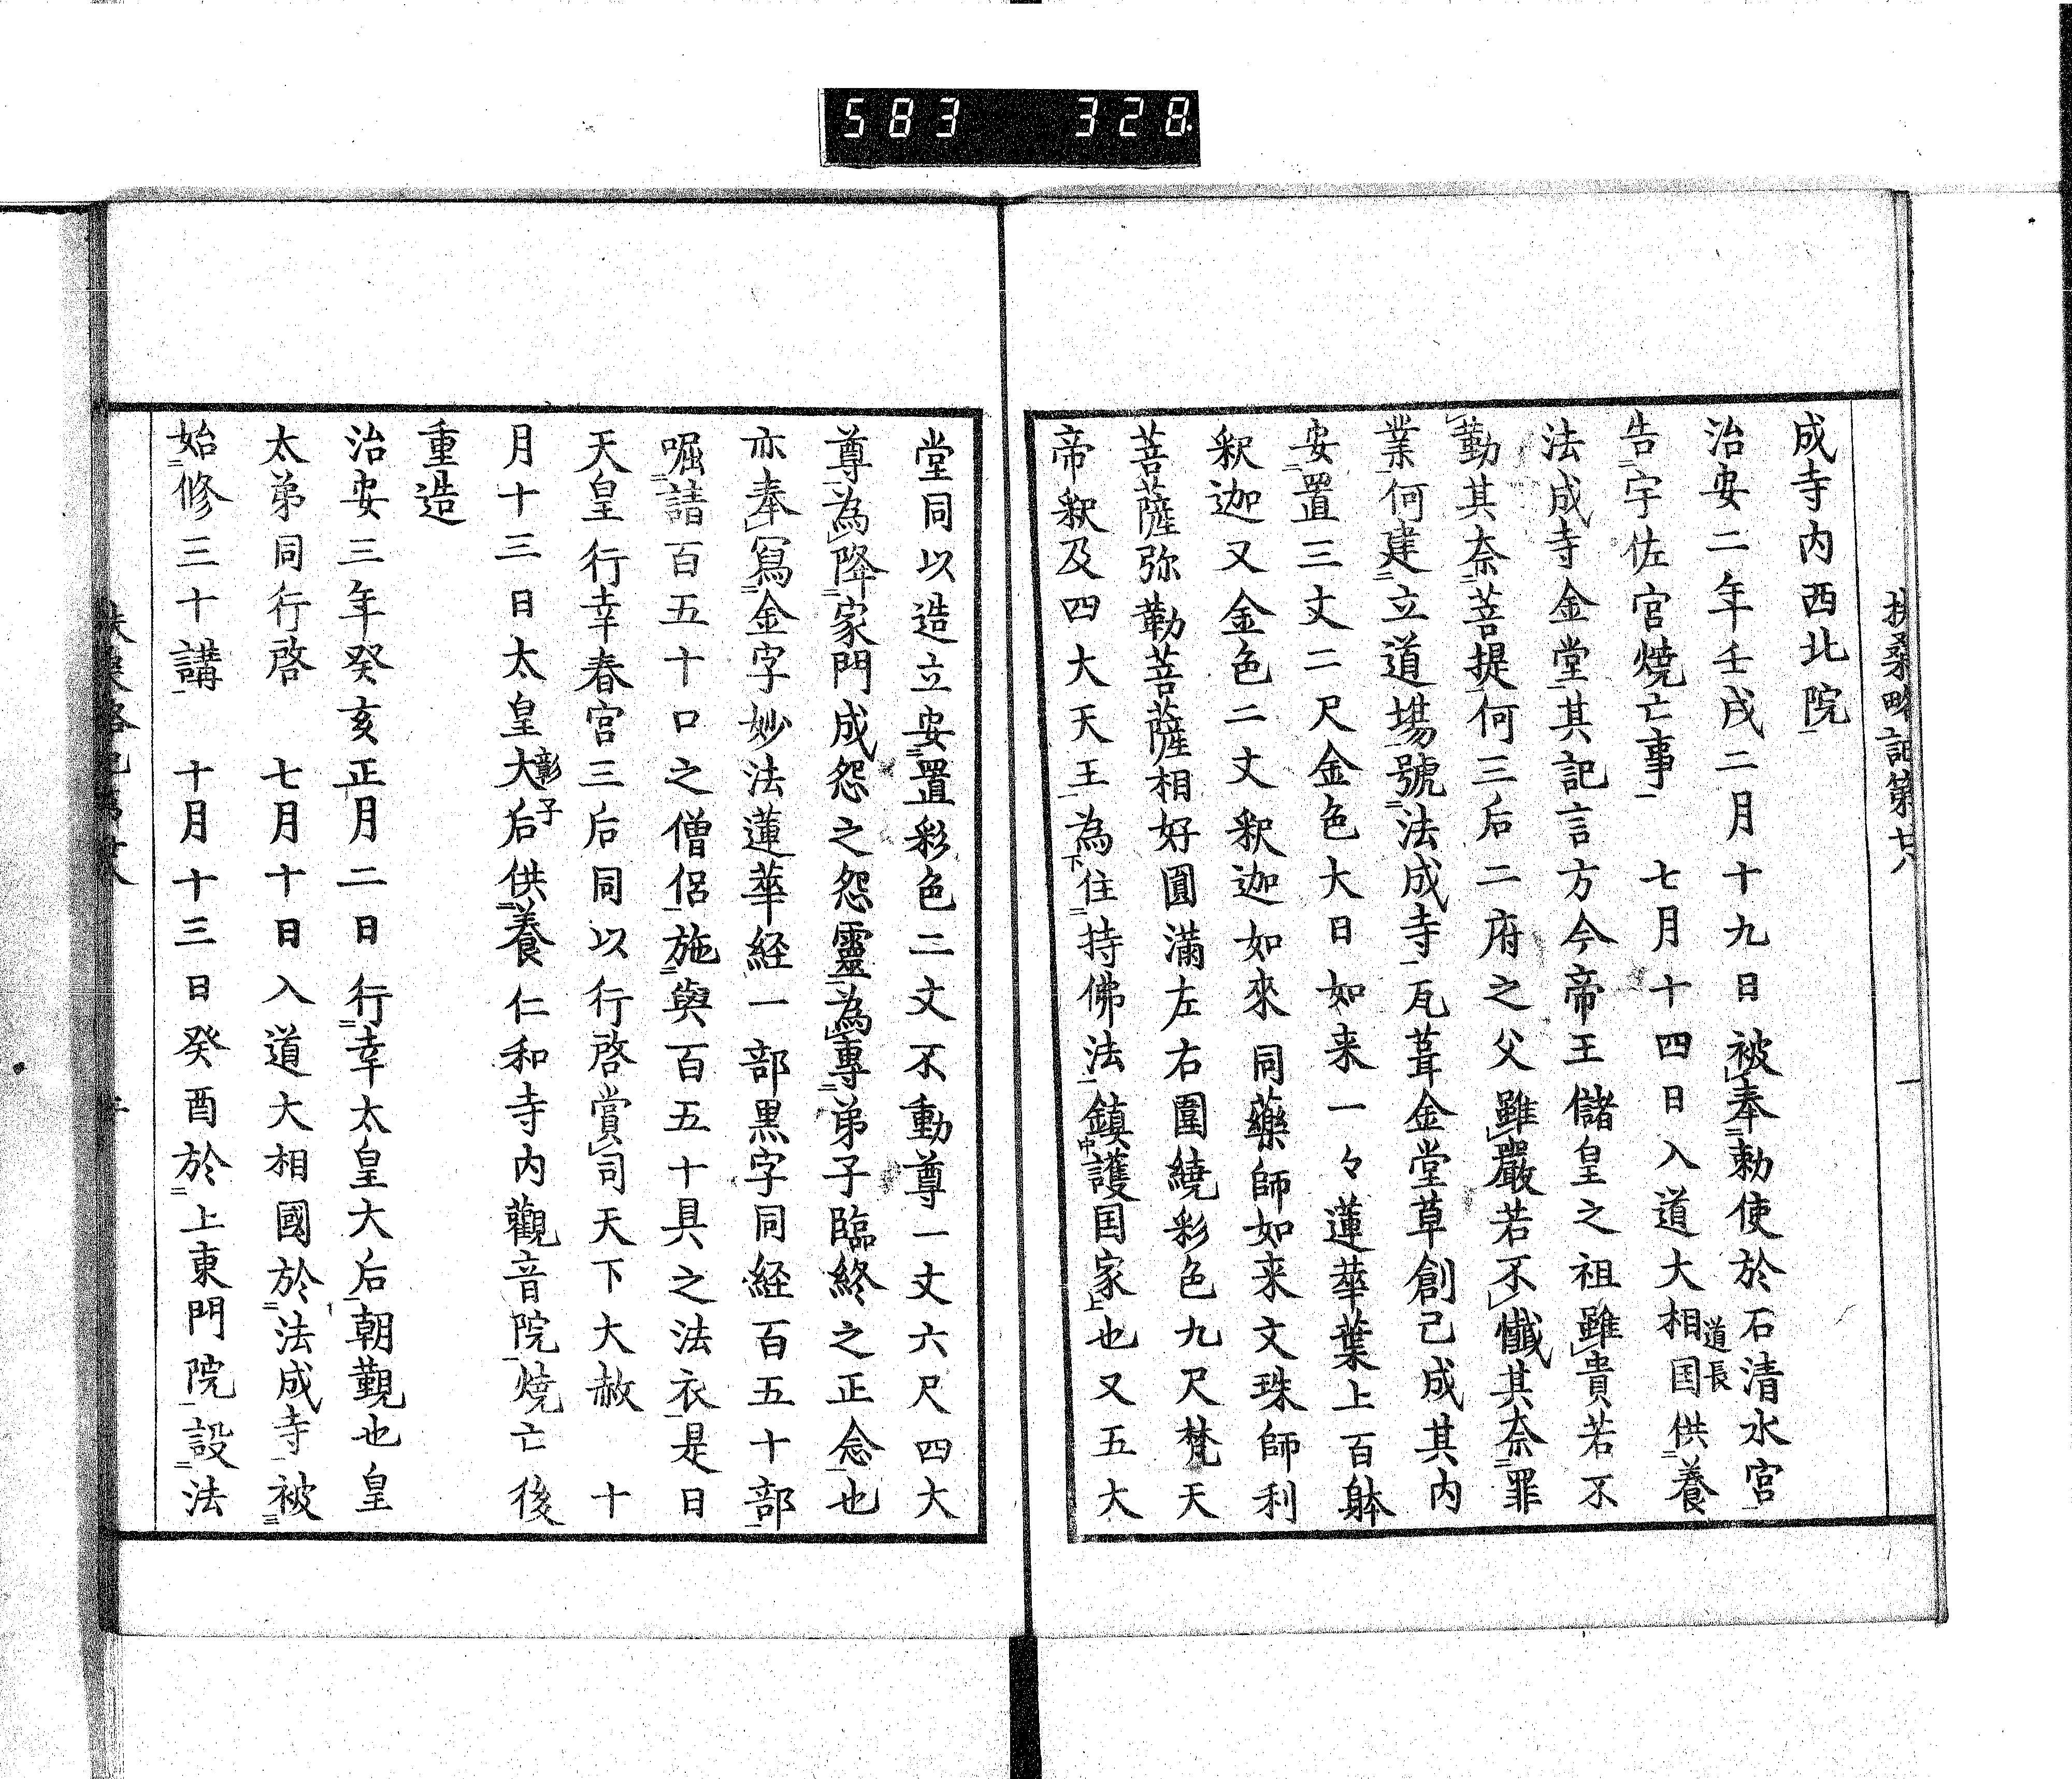 583 328
扶桑畧記第廿八 一
成寺内西北院
治安二年壬戌二月十九日被奉勅使於石清水宮
告宇佐宮焼亡事 七月十四日入道大相国道長供養
法成寺金堂其記言方今帝王儲皇之祖雖貴若不
勤其奈菩提何三后二府之父雖嚴若不懺其奈罪
業何建立道場號法成寺瓦葺金堂草創已成其内
安置三丈二尺金色大日如来一々蓮華葉上百躰
釈迦又金色二丈釈迦如來同藥師如来文珠師利
菩薩弥勒菩薩相好圓滿左右圍繞彩色九尺梵天
帝釈及四大天王為住持佛法鎮護国家也又五大
堂同以造立安置彩色二丈不動尊一丈六尺四大
尊為降家門成怨之怨靈為專弟子臨終之正念也
亦奉寫金字妙法蓮華経一部黒字同経百五十部
啒請百五十口之僧侶施與百五十具之法衣是日
天皇行幸春宮三后同以行啓賞司天下大赦 十
月十三日太皇大后彰子供養仁和寺内觀音院焼亡後
重造
治安三年癸亥正月二日行幸太皇大后朝覲也皇
太弟同行啓 七月十日入道大相國於法成寺被
始修三十講 十月十三日癸酉於上東門院設法